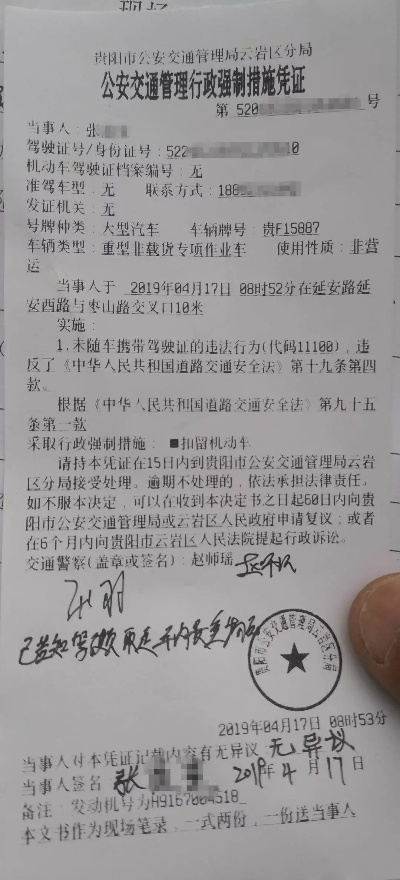 贵阳市公安交通管理局云岩区分局
公安交通管理行政强制措施凭证
第 520 号
当事人：张
驾驶证号/身份证号：522 0
机动车驾驶证档案编号：无
准驾车型：无 联系方式：188
发证机关：无
号牌种类：大型汽车 车辆牌号：贵F15887
车辆类型：重型非载货专项作业车 使用性质：非营
运
当事人于 2019年04月17日 08时52分在延安路延
安西路与枣山路交叉口10米
实施：
1.未随车携带驾驶证的违法行为(代码11100)，违
反了《中华人民共和国道路交通安全法》第十九条第四
款。
根据《中华人民共和国道路交通安全法》第九十五
条第一款
采取行政强制措施：■扣留机动车
请持本凭证在15日内到贵阳市公安交通管理局云岩
区分局接受处理。逾期不处理的，依法承担法律责任。
如不服本决定，可以在收到本决定书之日起60日内向贵
阳市公安交通管理局或云岩区人民政府申请复议；或者
在6个月内向贵阳市云岩区人民法院提起行政诉讼。
交通警察(盖章或签名)：赵师瑶
贵阳市公安交通管理局云岩区分局
2019年04月17日 08时53分
当事人对本凭证记载内容有无异议 无异议
当事人签名 张 2019年4月17日
备注：发动机号为H9167004518_
本文书作为现场笔录，一式两份，一份送当事人